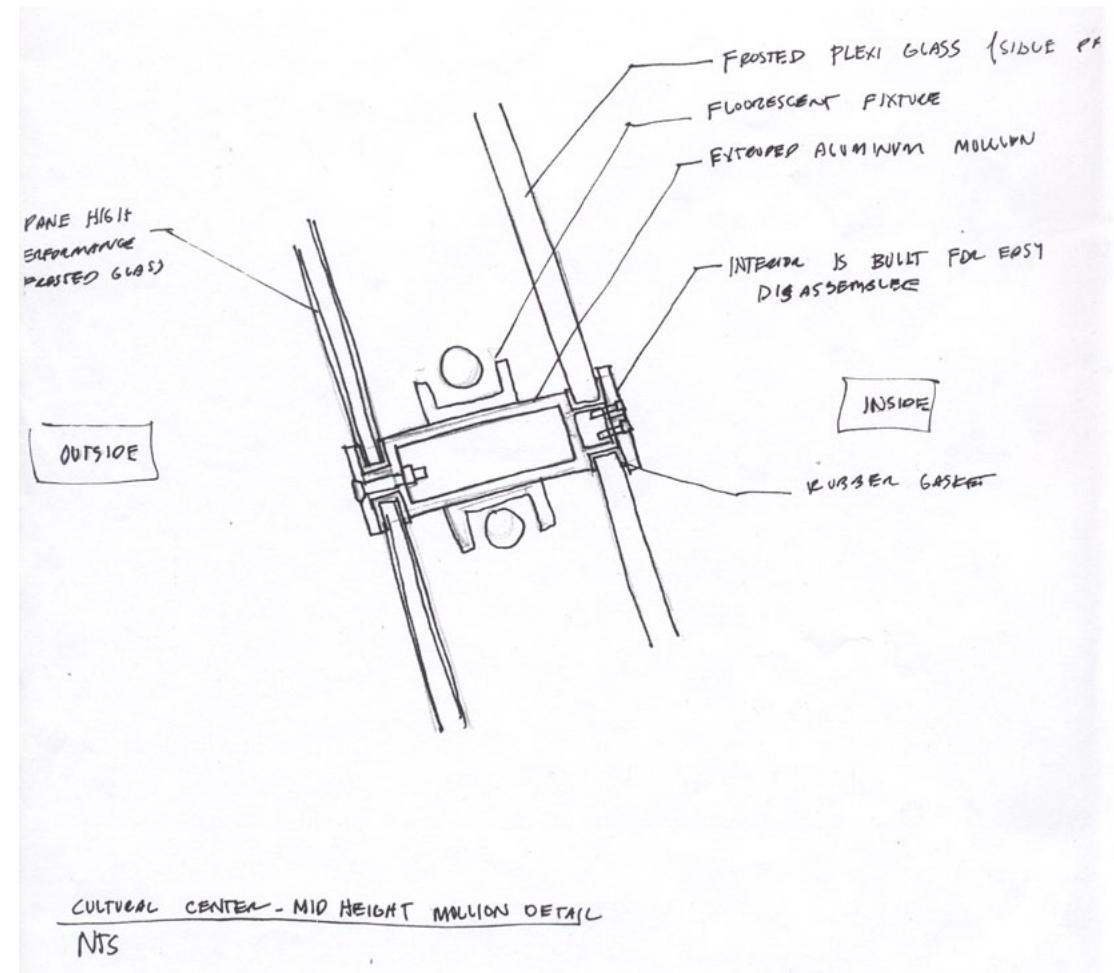 FROSTED PLEXI GLASS (SIDLE PA
FLUORESCENT FIXTURE
EXTRUDED ALUMINUM MULLION
PANE HIGH
ERFORMANCE
FROSTED GLASS
INTERIOR IS BUILT FOR EASY
DISASSEMBLEE
INSIDE
OUTSIDE
RUBBER GASKET
CULTURAL CENTER - MID HEIGHT MULLION DETAIL
NTS